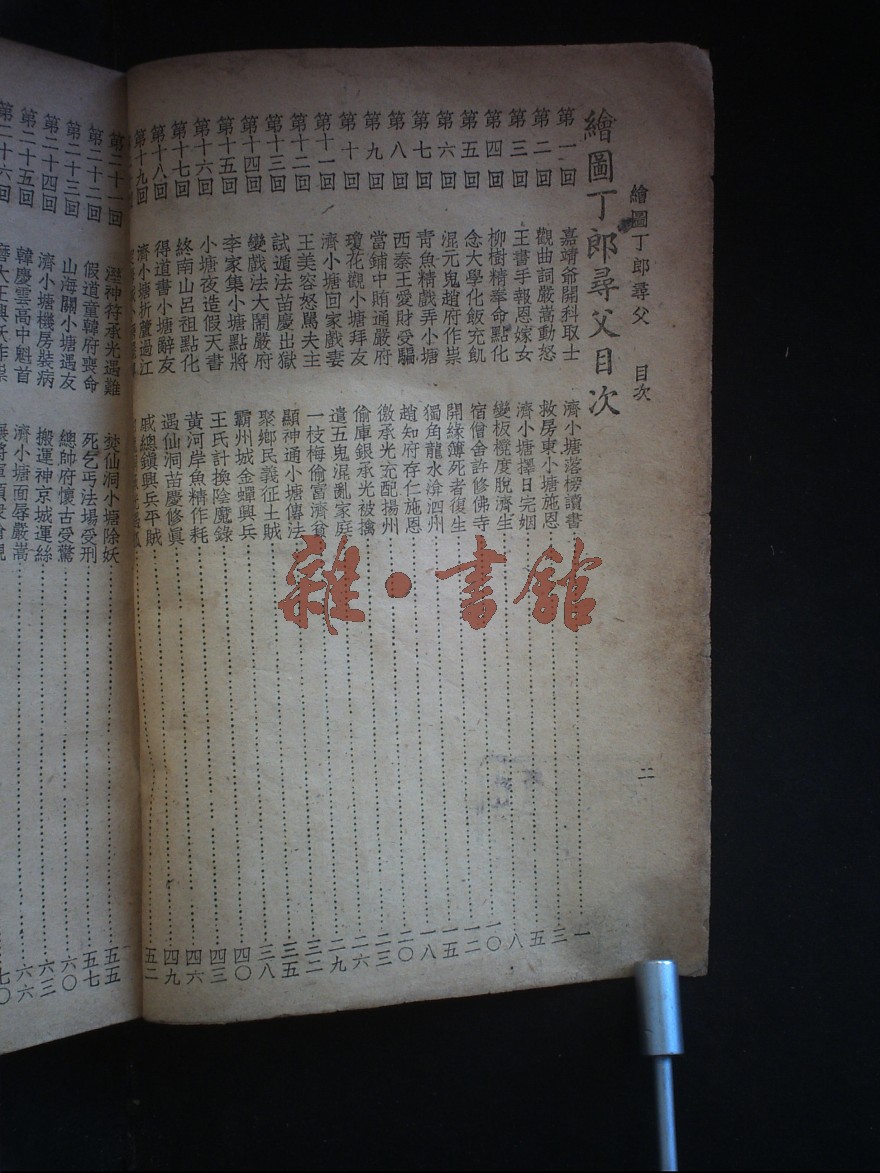 繪圖丁郎尋父 目次 二
繪圖丁郎尋父目次
第一回 嘉靖爺開科取士 濟小塘落榜讀書 一
第二回 觀曲詞嚴嵩動怒 救房東小塘施恩 三
第三回 王書手報恩嫁女 濟小塘擇日完姻 五
第四回 柳樹精奉命點化 變板櫈度脫濟生 八
第五回 念大學化飯充飢 宿僧舍許修佛寺 一〇
第六回 混元鬼趙府作祟 開緣簿死者復生 一二
第七回 青魚精戲弄小塘 獨角龍水渰泗州 一五
第八回 西泰王愛財受騙 趙知府存仁施恩 一八
第九回 當鋪中賄通嚴府 徽承光充配揚州 二〇
第十回 瓊花觀小塘拜友 偷庫銀承光被擒 二三
第十一回 濟小塘回家戲妻 遣五鬼混亂家庭 二六
第十二回 王美容怒罵夫主 一枝梅偷富濟貧 二九
第十三回 試遁法苗慶出獄 顯神通小塘傳法 三二
第十四回 變戲法大鬧嚴府 聚鄉民義征土賊 三五
第十五回 李家集小塘點將 霸州城金蟬興兵 三八
第十六回 小塘夜造假天書 王氏計換陰魔錄 四〇
第十七回 終南山呂祖點化 黃河岸魚精作耗 四三
第十八回 得道書小塘辭友 遇仙洞苗慶修眞 四六
第十九回 濟小塘折蘆過江 戚總鎮興兵平賊 四九
五二
第二十一回 神符承光遇難 焚仙洞小塘除妖 五五
第二十二回 假道童韓府喪命 死乞丐法場受刑 五七
第二十三回 山海關小塘遇友 總帥府懷古受驚 六〇
第二十四回 濟小塘機房裝病 搬運神京城運絲 六三
第二十五回 韓慶雲高中魁首 濟小塘面辱嚴嵩 六六
第二十六回 大王興妖作祟 七〇
雜·書館